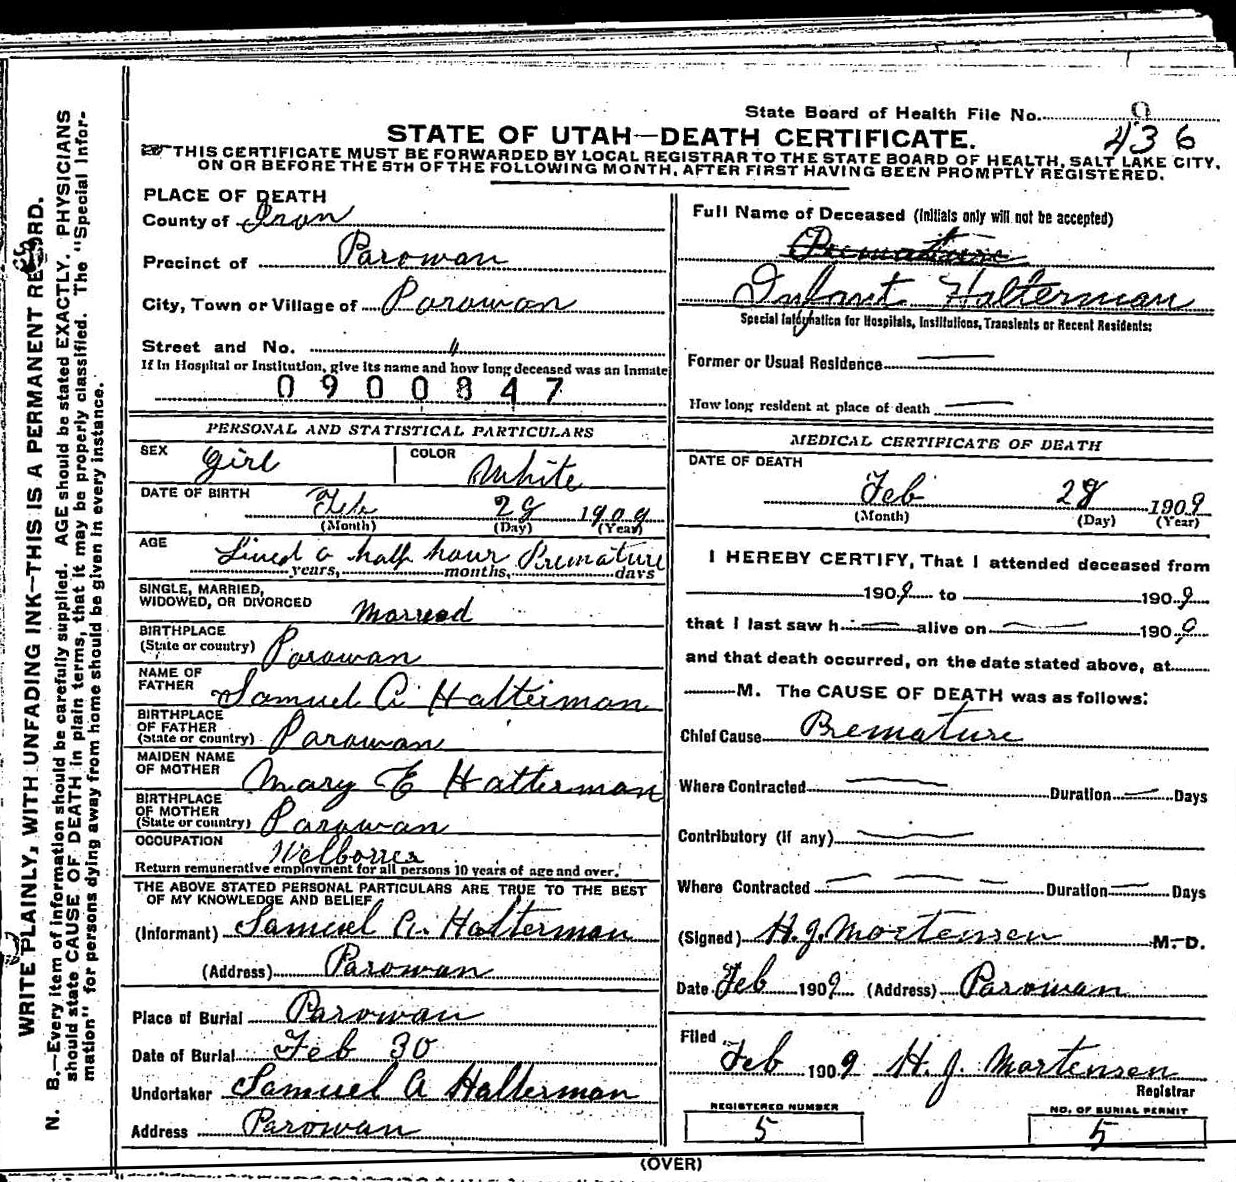 State Board of Health File No. 9
436
STATE OF UTAH—DEATH CERTIFICATE.
THIS CERTIFICATE MUST BE FORWARDED BY LOCAL REGISTRAR TO THE STATE BOARD OF HEALTH, SALT LAKE CITY,
ON OR BEFORE THE 5TH OF THE FOLLOWING MONTH, AFTER FIRST HAVING BEEN PROMPTLY REGISTERED.
WRITE PLAINLY, WITH UNFADING INK—THIS IS A PERMANENT RECORD.
N. B.—Every item of information should be carefully supplied. AGE should be stated EXACTLY. PHYSICIANS
should state CAUSE OF DEATH in plain terms, that it may be properly classified. The "Special Infor-
mation" for persons dying away from home should be given in every instance.
PLACE OF DEATH
County of Iron
Precinct of Parowan
City, Town or Village of Parowan
Street and No. "
If in Hospital or Institution, give its name and how long deceased was an Inmate
0900847
PERSONAL AND STATISTICAL PARTICULARS
SEX Girl COLOR White
DATE OF BIRTH Feb 28 1909
(Month) (Day) (Year)
AGE Lived a half hour Premature
years, months, days
SINGLE, MARRIED,
WIDOWED, OR DIVORCED Married
BIRTHPLACE
(State or country) Parowan
NAME OF
FATHER Samuel A Halterman
BIRTHPLACE
OF FATHER
(State or country) Parowan
MAIDEN NAME
OF MOTHER Mary E Halterman
BIRTHPLACE
OF MOTHER
(State or country) Parowan
OCCUPATION
Return remunerative employment for all persons 10 years of age and over.
THE ABOVE STATED PERSONAL PARTICULARS ARE TRUE TO THE BEST
OF MY KNOWLEDGE AND BELIEF
(Informant) Samuel A. Halterman
(Address) Parowan
Place of Burial Parowan
Date of Burial Feb 30
Undertaker Samuel A Halterman
Address Parowan
Full Name of Deceased (Initials only will not be accepted)
Premature
Infant Halterman
Special Information for Hospitals, Institutions, Transients or Recent Residents:
Former or Usual Residence —
How long resident at place of death —
MEDICAL CERTIFICATE OF DEATH
DATE OF DEATH
Feb 28 1909
(Month) (Day) (Year)
I HEREBY CERTIFY, That I attended deceased from
1909 to 1909
that I last saw h — alive on — 1909
and that death occurred, on the date stated above, at
M. The CAUSE OF DEATH was as follows:
Chief Cause Premature
Where Contracted — Duration — Days
Contributory (if any) —
Where Contracted — — — Duration — Days
(Signed) H. J. Mortensen M. D.
Date Feb 1909 (Address) Parowan
Filed
Feb 1909 H. J. Mortensen
Registrar
REGISTERED NUMBER
5
NO. OF BURIAL PERMIT
5
(OVER)